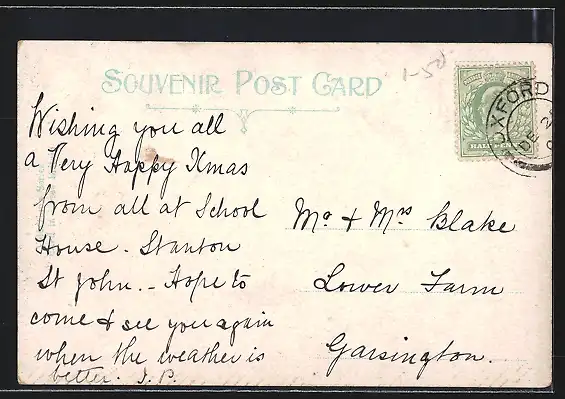 1-50
SOUVENIR POST CARD
HALFPENNY
OXFORD
DE 2
Wishing you all
a Very Happy Xmas
from all at School
House. Stanton
St John. - Hope to
come & see you again
when the weather is
better. J. P.
Mr & Mrs Blake
Lower Farm
Garsington.